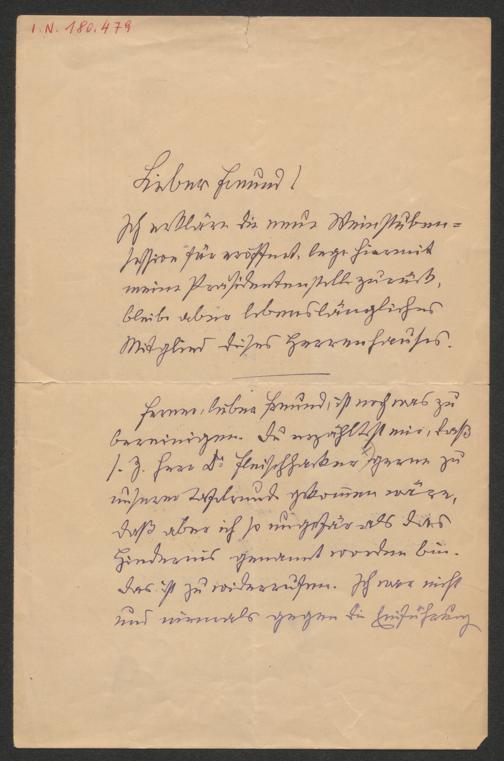 I. N. 180.479
Lieber Freund!
Ich erkläre die neue Weinstuben-
session für eröffnet, lege hiermit
meine Präsidentenstelle zurück,
bleibe aber lebenslängliches
Mitglied dieses Herrenhauses.
Ferner, lieber Freund, ist noch was zu
bereinigen. Du erzähltest mir, daß
s. Z. Herr Dr Fleischhacker gerne zu
unserer Tafelrunde gekommen wäre,
daß aber ich so ungefär als das
Hindernis genannt worden bin.
Das ist zu widerrufen. Ich war nicht
und niemals gegen die Einführung